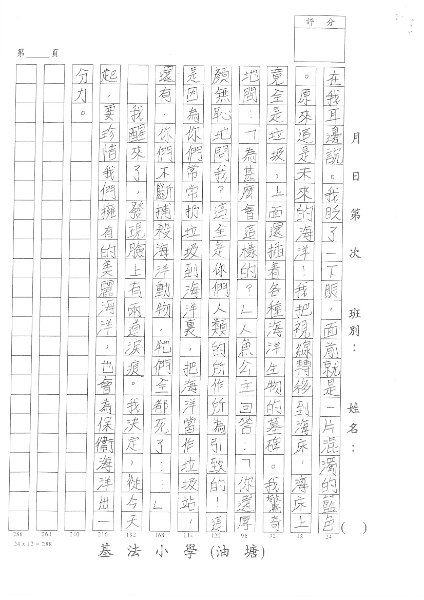 評分
月 日 第 次 班別： 姓名：（ ）
第 頁
在我耳邊說。我眨了一下眼，面前就是一片混濁的藍色
。原來這是未來的海洋！我把視線轉移到海床，海床上
竟全是垃圾，上面還插着各種海洋生物的墓碑。我驚奇
地問：「為甚麼會這樣的？」人魚公主回答：「你還厚
顏無恥地問我？這全是你們人類的所作所為引致的！這
是因為你們常常扔垃圾到海洋裏，把海洋當作垃圾站，
還有，你們不斷捕殺海洋動物，牠們全都死了……」
我醒來了，發現臉上有兩道淚痕。我決定，從今天
起，要珍惜我們擁有的美麗海洋，也會為保衞海洋出一
分力。
24
48
72
96
120
144
168
192
216
240
264
288
24 x 12 = 288
基法小學(油塘)